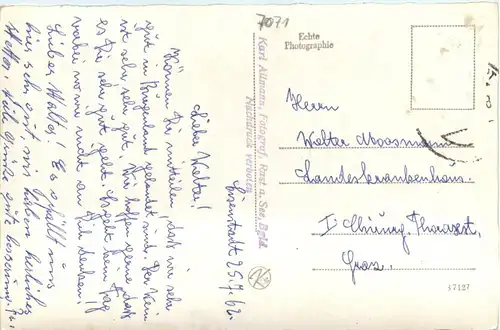 7071
Echte
Photographie
Karl Allmann, Fotograf, Rust a. See, Bgld.
Nachdruck verboten
Eisenstadt 25.7.62.
Lieber Walter!
Können Dir mitteilen, daß wir sehr
gut in Burgenland gelandet sind. Der Wein
ist sehr, sehr gut. Wir hoffen gerne, daß
es Dir sehr gut geht. Es geht kein Tag
vorbei wo wir nicht an Dich denken!
Lieber Walter! Es gefällt uns
hier sehr gut, wir haben herrliches
Wetter. Viele Grüße gute Besserung.
Herrn
Walter Moosmann
Landeskrankenhaus.
I. Chirurg.
Graz.
17127